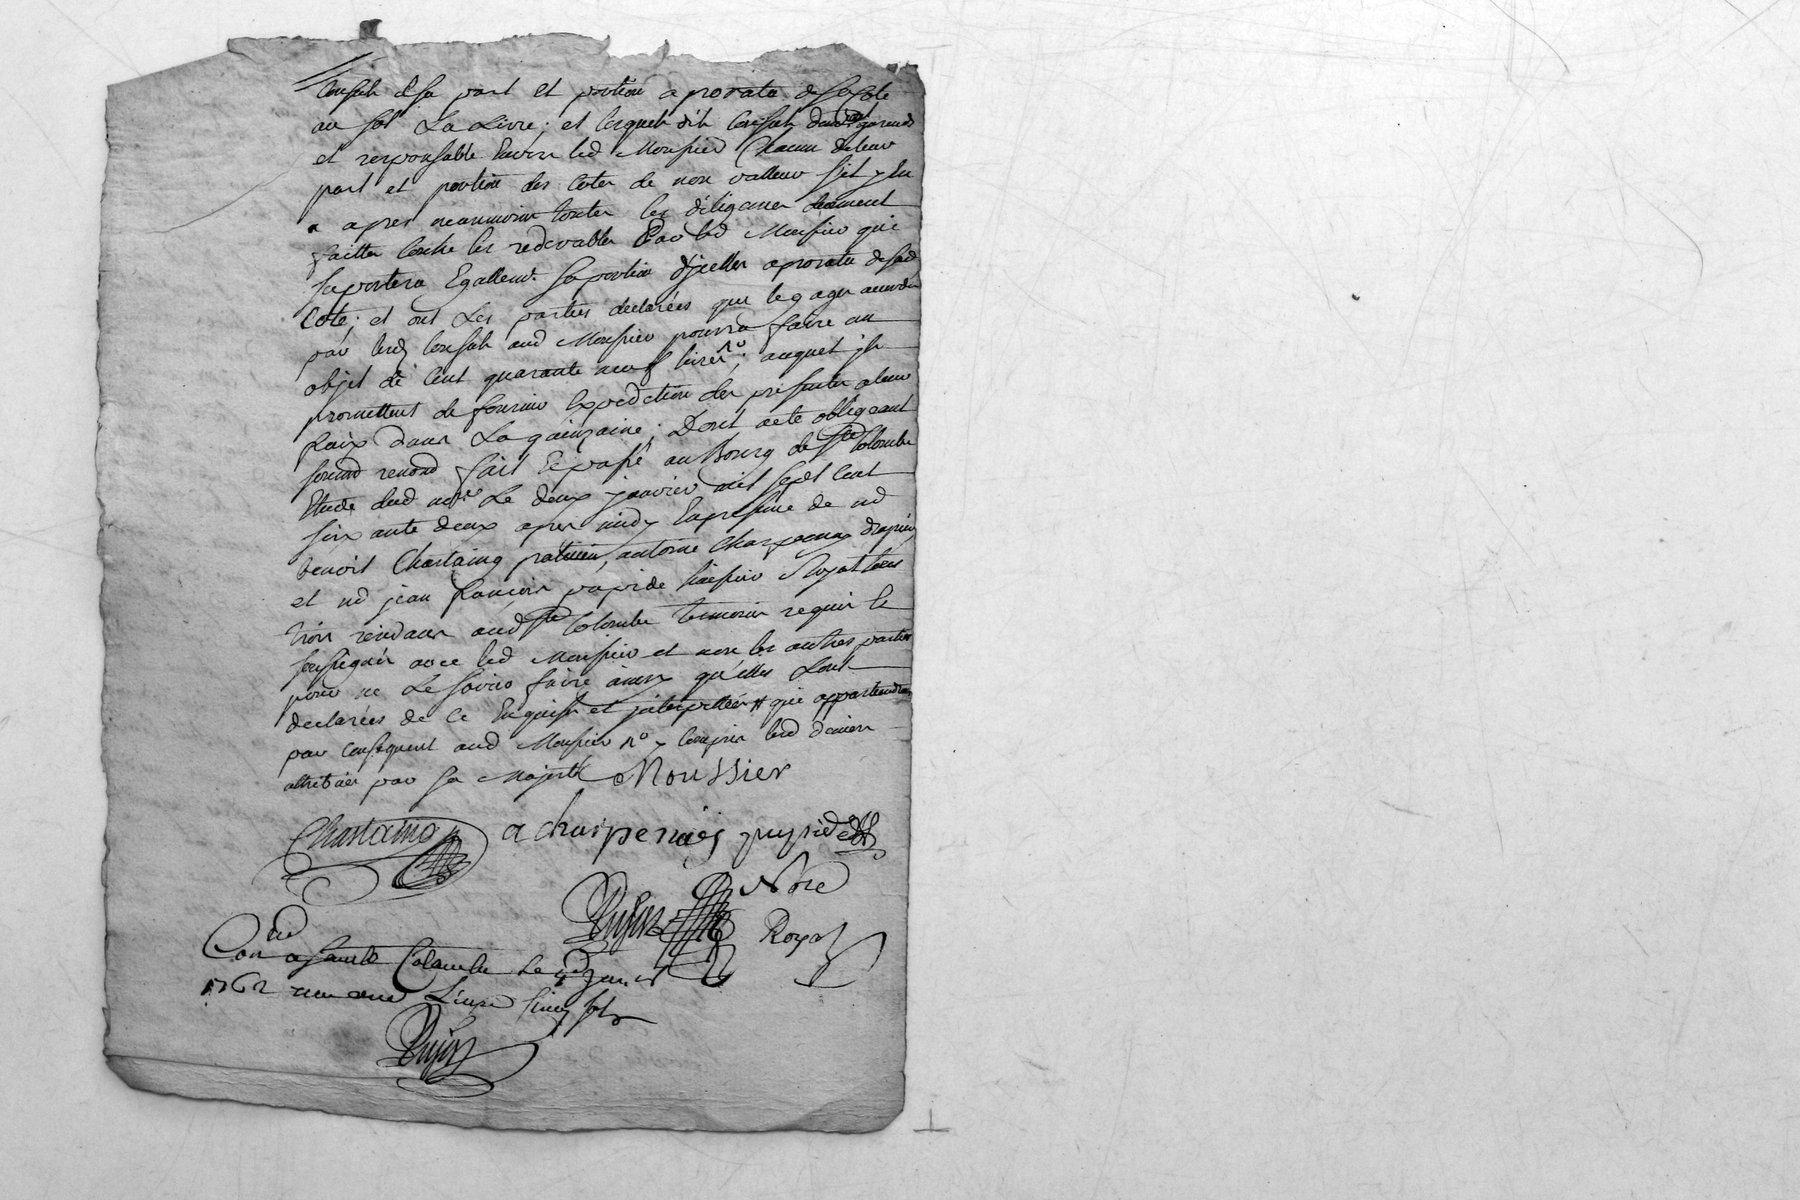 Consuls de sa part et portion a prorata de sa Cote
au sol La Livre; et lesquels dits Consuls garends
et responsable Envers led Moussier Chacun de leur
part et portion des Cotes de non valleur s'il y En
a apres neanmoins toutes les diligences
faittes Contre les redevables Par led Moussier qui
suportera Egallemt. sa portion d'jcelles a prorata de sad
Cote; et ont Les parties declarées que les gages
par lesd Consuls aud Moussier pourra faire un
objet de Cent quarante neuf livres; auquel jls
promettent de fournir Expedition des presentes a leur
fraix dans La quinzaine; Dont acte obligeant
soumd renond fait Et passé au Bourg de Ste Colombe
Etude dud nore Le deux janvier mil sept Cent
soixante deux apres midy En presence de md
benoit Chastaing praticien, antoine Charpenay
et md jean francois papide huissier Royal
aud Ste Colombe temoins requis Et
soussignés avec led Moussier et non les autres parties
pour ne Le savoir faire ainsy qu'elles L'ont
declarées de Ce Enquises et jnterpellées # qui appartiendra
par Consequent aud Moussier no y Compris lesd deniers
attribués par sa Majesté Moussier
Chastaing a charpenay papide
Nore
Pupier Royal
Conlé
a Sainte Colombe Le janvier
1762 Livre Cinq sols
Pupier